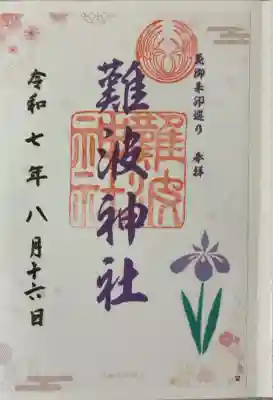 夏御朱印巡り 奉拝
難波神社
難波神社
令和七年八月十六日